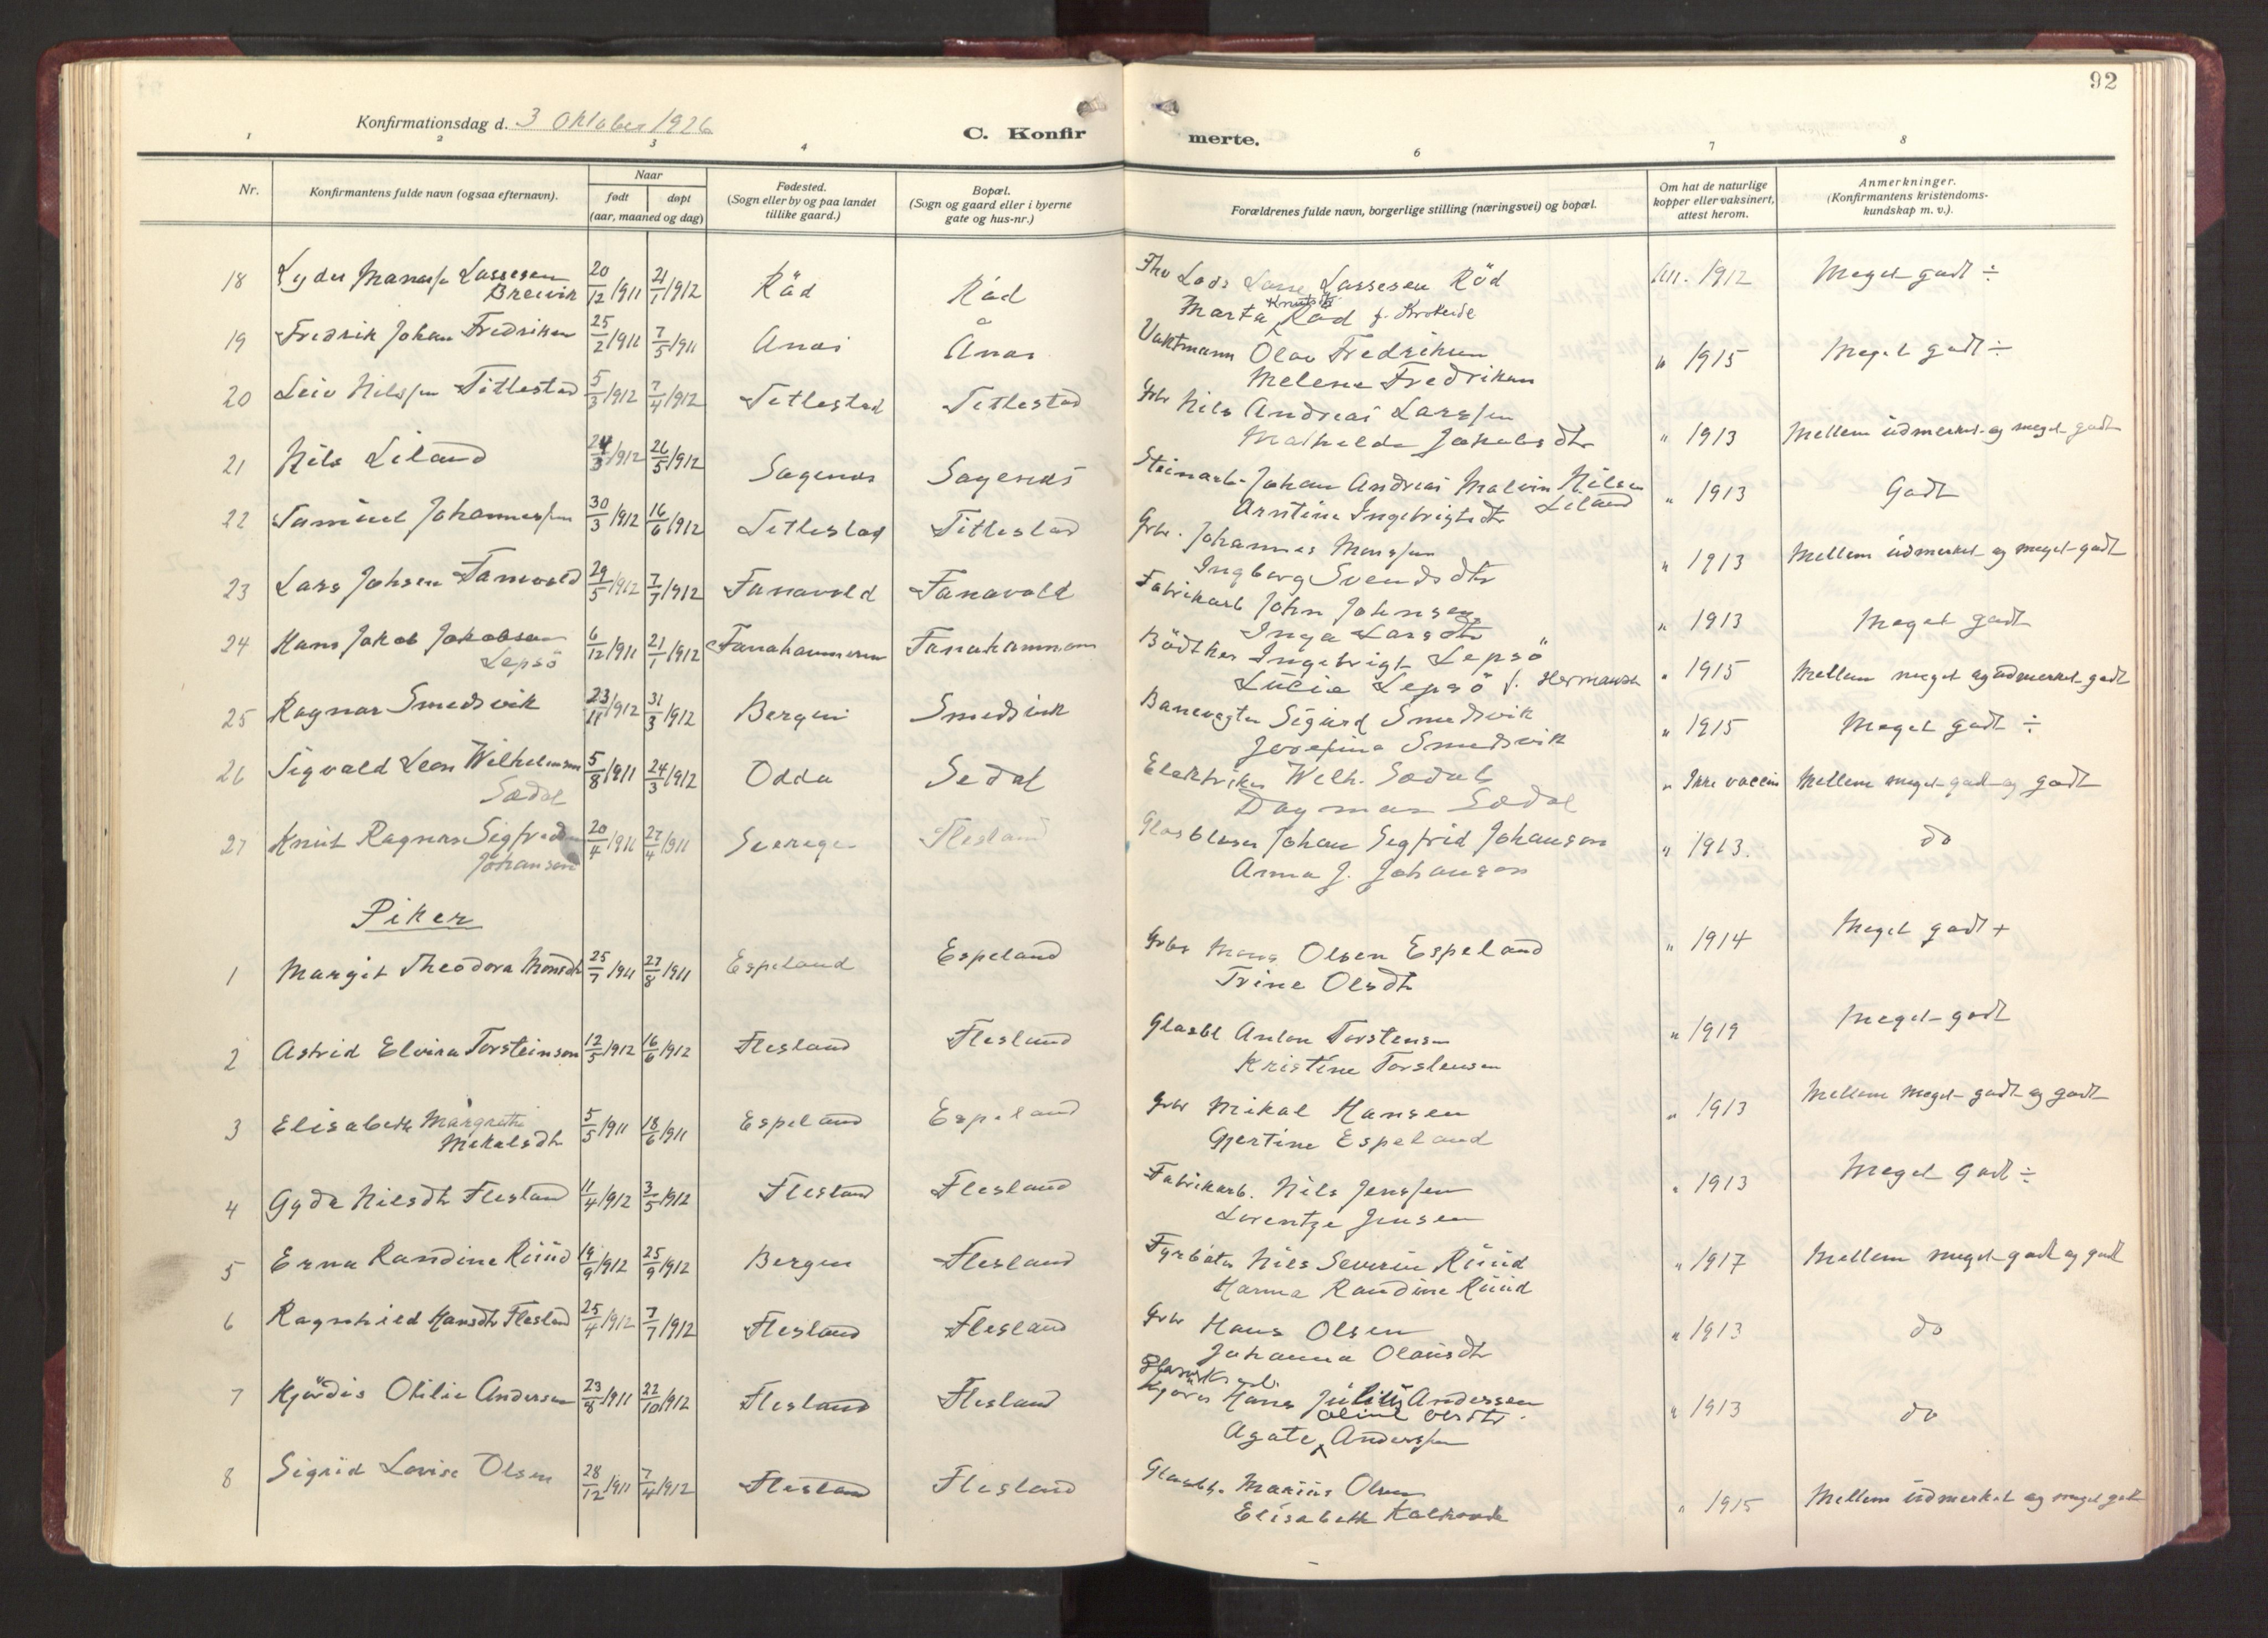 92
Konfirmationsdag d. 3 Oktober 1926
C. Konfir merte.
1 2 3 4 6 7 8
Nr.
Konfirmantens fulde navn (ogsaa efternavn).
Naar
født døpt
(aar, maaned og dag)
Fødested.
(Sogn eller by og paa landet
tillike gaard.)
Bopæl.
(Sogn og gaard eller i byerne
gate og hus-nr.)
Forældrenes fulde navn, borgerlige stilling (næringsvei) og bopæl.
Om hat de naturlige
kopper eller vaksinert,
attest herom.
Anmerkninger.
(Konfirmantens kristendoms-
kundskap m. v.).
18 Lyder Lassesen 20/12 1911 21/1 1912 Råd Råd Lassesen Röd 1912 Meget godt ÷
Breivik Marta Knutsdtr Råd f. Krokeide
19 Fredrik Johan Fredriksen 25/2 1911 7/5 1911 Vaktmann Olav Fredriksen " 1915 Meget godt ÷
Melene Fredriksen
20 Leiv Nilssen Titlestad 5/3 1912 7/4 1912 Titlestad Titlestad Gbr Nils Andreas Larssen " 1913 Mellem udmerket og meget godt
Mathilde Jakobsdtr
21 Nils Liland 24/3 1912 26/5 1912 Steinarb. Johan Andreas Malvin Nilsen " 1913 Godt
Liland
Arntine Ingebrigtsdtr
22 Samuel Johannessen 30/3 1912 16/6 1912 Titlestad Titlestad Gbr. Johannes Monssen " 1913 Mellem udmerket og meget godt
Ingborg Svendsdtr
23 Lars Johsen Fanavold 29/5 1912 7/7 1912 Fanavold Fanavold Fabrikarb John Johnsen " 1913 Meget godt
Inga Larsdtr
24 Hans Jakob Jakobsen 6/12 1911 21/1 1912 Fanahammeren Fanahammeren Bödtker Ingebrigt Lepsö " 1915 Mellem meget og udmerket godt
Lepsö Lucie Lepsö f. Hermansen
25 Ragnar Smedsvik 31/3 1912 Bergen Smedsvik Banevogter Sigurd Smedsvik " 1915 Meget godt ÷
Josefine Smedsvik
26 Sigvald Leon Wilhelmsen 5/8 1911 24/3 1912 Odda Sædal Elektriker Wilh. Sædal " Ikke vaccin Mellem meget godt og godt
Sædal Dagmar Sædal
27 Knut Ragnar Sigfredsen 20/4 1911 27/4 1911 Sverige Flesland Glasblaser Johan Segfrid Johanson " 1913. do
Johanson Anna J. Johanson
Piker
1 Margit Theodora Monsdtr 25/7 1911 27/8 1911 Espeland Espeland Gbr Mons Olsen Espeland " 1914 Meget godt +
Trine Olsdtr
2 Astrid Elvira Torsteinson 12/5 1912 16/6 1912 Flesland Flesland Glasbl Anton Torstensen " 1919 Meget godt
Kristine Torstensen
3 Elisabeth Margrethe 5/5 1911 18/6 1911 Espeland Espeland Gbr Mikal Hansen " 1913 Mellem meget godt og godt
Mikalsdtr Gjertine Espeland
4 Gyda Nilsdtr Flesland 11/4 1912 3/5 1912 Flesland Flesland Fabrikarb. Nils Jenssen " 1913 Meget godt ÷
Lorentze Jensen
5 Erna Randine Ruud 19/9 1912 25/9 1912 Bergen Flesland Fyrbøter Nils Severin Ruud " 1917 Mellem meget godt og godt
Hanna Randine Ruud
6 Ragnhild Hansdtr Flesland 25/4 1912 7/7 1912 Flesland Flesland Gbr Hans Olsen " 1913 do
Johanna Olausdtr
7 Hjördis Otilie Andersen 23/8 1911 22/10 1912 Flesland Flesland Hans Julius Andersen " 1913 do
Oline Olsdtr.
Agate Anderssen
8 Sigrid Lovise Olsen 28/12 1911 7/4 1912 Flesland Flesland Glasbl. Marius Olsen " 1915 Mellem udmerket og meget godt
Elisabeth